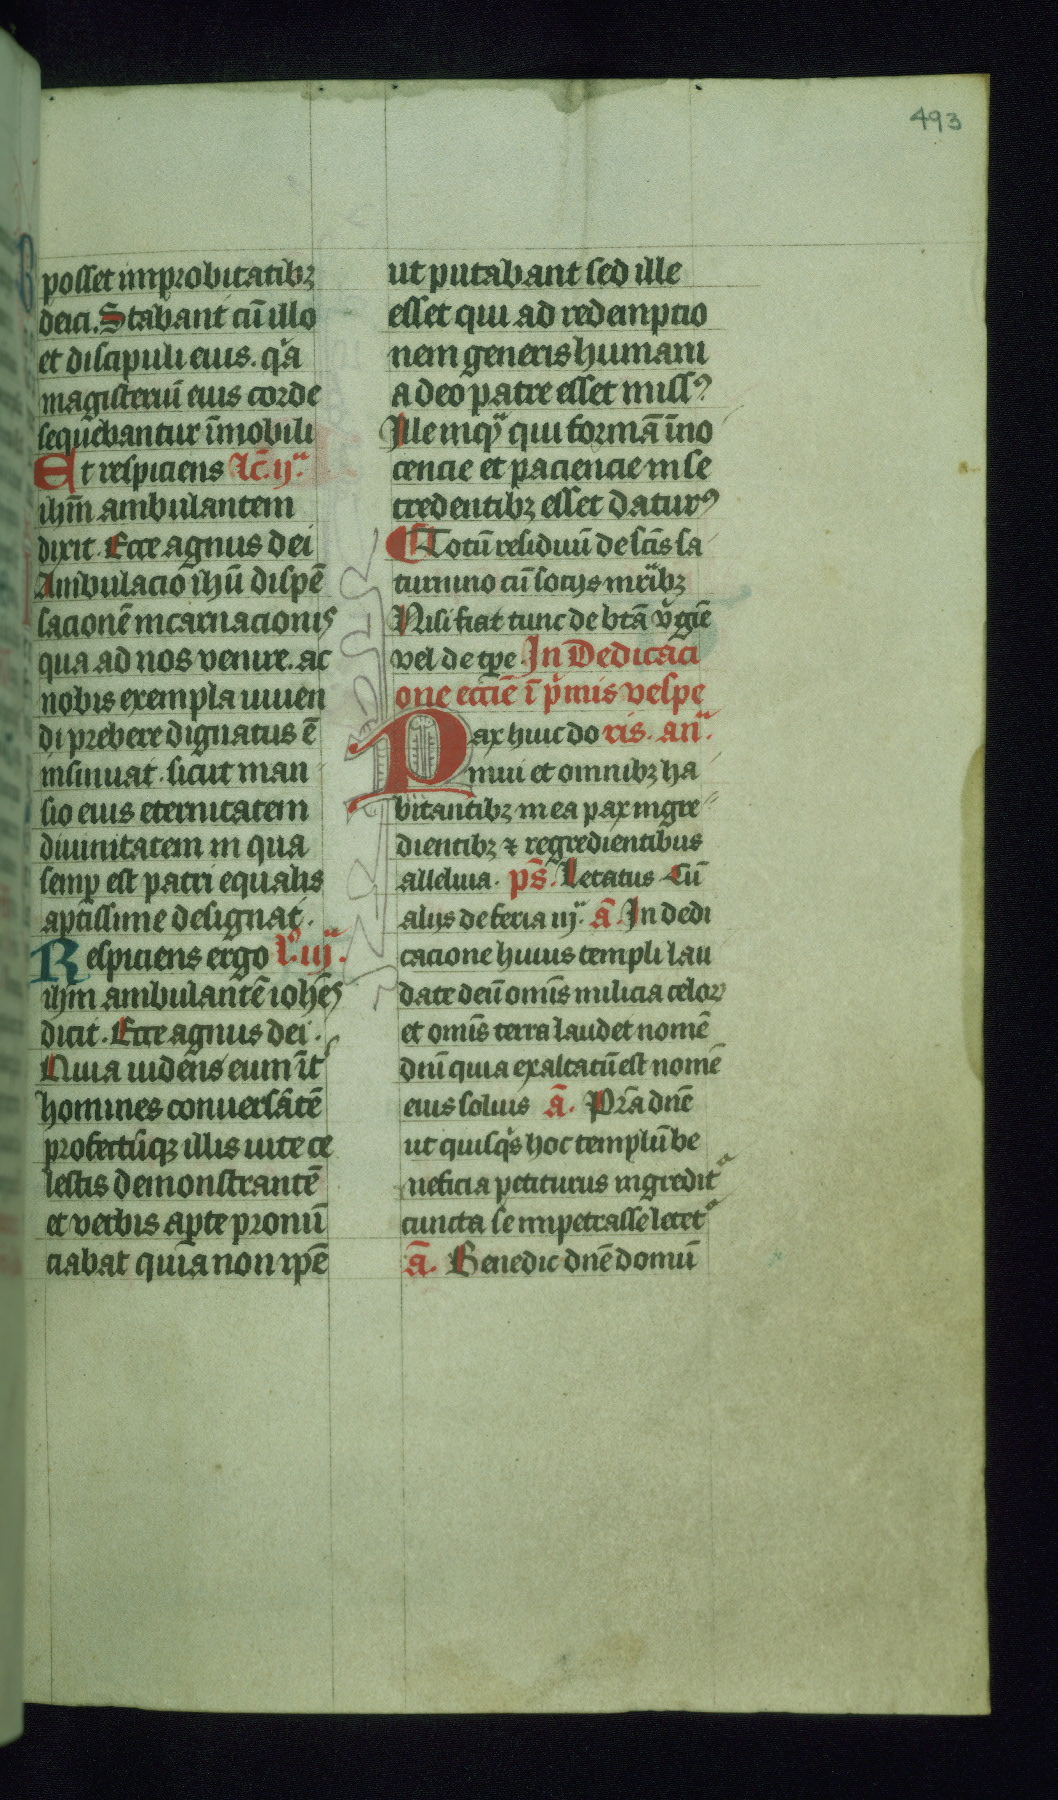 493
posset improbitatibꝫ
deici. Stabant cū illo
et discipuli eius. qͥa
magisteriū eius corde
sequēbantur īmobili
Et respiciens lc̄. ijᵃ
ihm̄ ambulantem
dixit. Ecce agnus dei
Ambulacio ihū dispē
sacionē incarnacionis
qua ad nos venire. ac
nobis exempla uiuen
di prebere dignatus ē
insinuat. sicut man
sio eius eternitatem
diuinitatem in qua
semꝑ est patri equalis
aptissime designat.
Respiciens ergo l̄. iijᵃ.
ihm ambulantē iohēs
dicit. Ecce agnus dei.
Quia uidens eum īt
homines conuersātē
profectūqꝫ illis uite ce
lestis demonstrantē
et verbis aꝑte pronū
ciabat quia non ip̄e
ut putabant sed ille
esset qui ad redempcio
nem generis humani
a deo patre esset missꝰ
Ille inqᵃ qui formā īno
cencie et paciencie in se
credentibꝫ esset daturꝰ
Totū residuū de sc̄is sa
turnino cū socijs mr̄ibꝫ
Nisi fiat tunc de btā v̓gīe
vel de tꝑe. In Dedicaci
one eccīe ī pͥmis vespe
Pax huic do ris. anᵃ.
mui et omnibꝫ ha
bitantibꝫ in ea pax ingre
dientibꝫ ⁊ regredientibus
alleluia. ps̄. Letatus Cū
alijs de feria iijᵃ. ā. In dedi
cacione huius templi lau
date deū omīs milicia celoꝝ
et omīs terra laudet nomē
dnī quia exaltatū est nomē
eius solius ā. Pr̄a dnē
ut quisqͥs hoc templū be
neficia petiturus ingreditᵘʳ
cuncta se impetrasse letetᵘʳ
ā. Benedic dnē domū